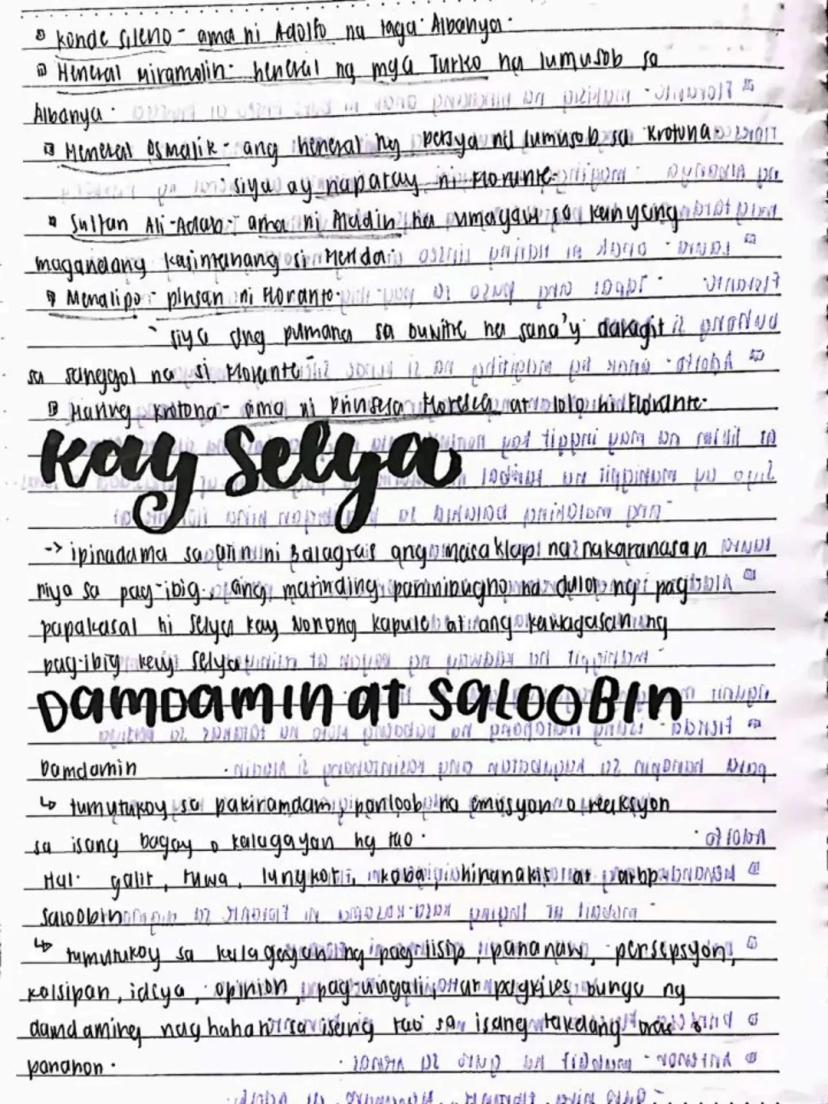 Konde Sileno - ama ni Adolfo na taga Albanya.
Heneral Miramolin - heneral ng mga Turko na lumusob sa
Albanya.
Heneral Osmalik - ang heneral ng Persya na lumusob sa Krotona
siya ay napatay ni Florante.
Sultan Ali-Adab - ama ni Aladin na umagaw sa kanyang
magandang kasintahang si Flerida
Menalipo - pinsan ni Florante
siya ang pumana sa buwitre na sana'y daragit
sa sanggol na si Florante
Haring Krotona - ama ni Prinsesa Floresca at lolo ni Florante.
Kay Selya
-> ipinadama sa atin ni Balagtas ang masaklap na nakaranasan
niya sa pag-ibig, ang matinding paninibugho na dulot ng pag
papakasal ni Selya kay Nonong kapule at ang kawagasan ng
pag-ibig kay Selya
DAMDAMIN at SALOOBIN
Damdamin
↳ tumutukoy sa pakiramdam, panloob na emusyon o reaksyon
sa isang bagay o kalagayan ng tao.
Hal. galit, tuwa, lungkot, kaba, hinanakit at atbp.
Saloobin
↳ tumutukoy sa kalagayan ng pag iisip, pananaw, persepsyon,
kaisipan, ideya, opinion, pag-uugali, at pagkilos bunga ng
damdaming naghahari sa isang tao sa isang takdang oras o
panahon.